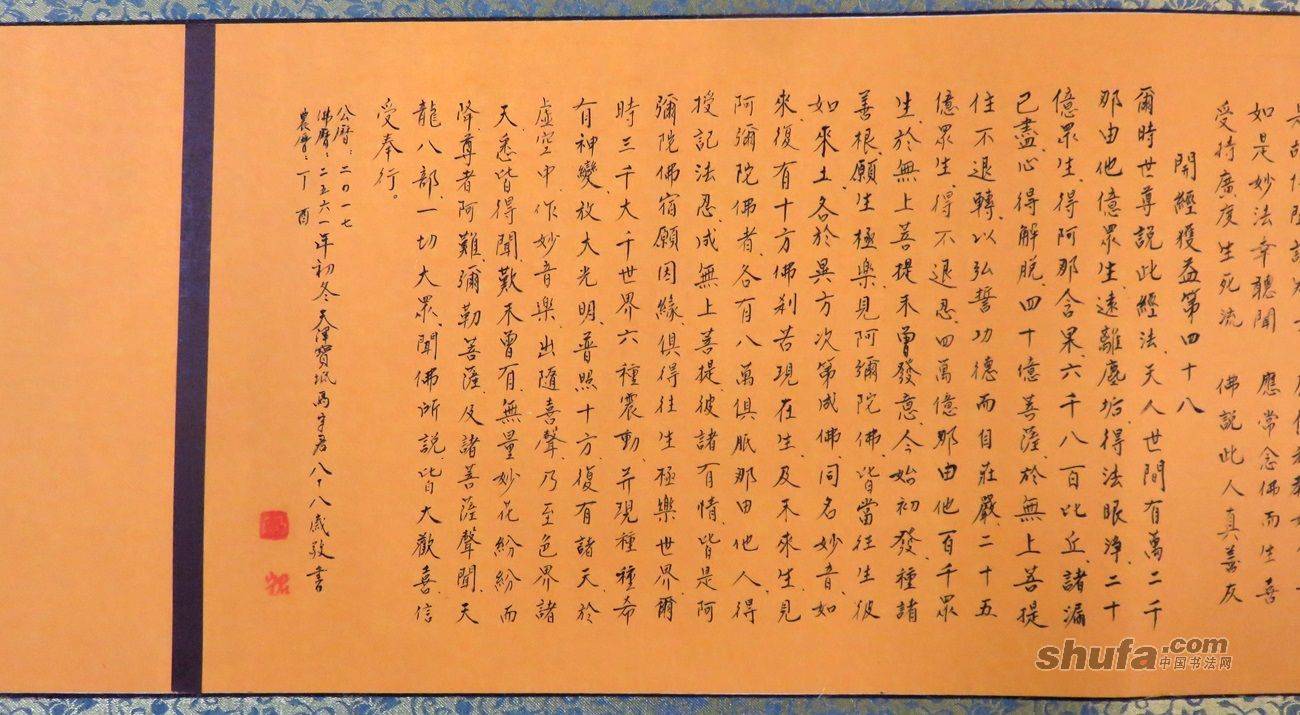 如是妙法幸聽聞 應常念佛而生喜
受持廣度生死流 佛說此人真善友
聞經獲益第四十八
爾時世尊說此經法、天人世間有萬二千
那由他億眾生、遠離塵垢、得法眼淨、二十
億眾生、得阿那含果、六千八百比丘、諸漏
已盡、心得解脫、四十億菩薩、於無上菩提
住不退轉、以弘誓功德而自莊嚴、二十五
億眾生、得不退忍、四萬億那由他百千眾
生、於無上菩提未曾發意、今始初發、種諸
善根、願生極樂、見阿彌陀佛、皆當往生彼
如來土、各於異方次第成佛、同名妙音、如
來、復有十方佛剎若現在生、及未來生、見
阿彌陀佛者、各有八萬俱胝那由他人、得
授記法忍、成無上菩提、彼諸有情、皆是阿
彌陀佛宿願因緣、俱得往生極樂世界、爾
時三千大千世界六種震動、并現種種希
有神變、放大光明、普照十方、復有諸天於
虛空中、作妙音樂、出隨喜聲、乃至色界諸
天、悉皆得聞、歎未曾有、無量妙花紛紛而
降、尊者阿難、彌勒菩薩、及諸菩薩聲聞、天
龍八部、一切大眾、聞佛所說、皆大歡喜、信
受奉行。
公曆:二〇一七
佛曆:二五六一年初冬天津寶坻馮守君八十八歲敬書
農曆:丁酉
shufa.com
中国书法网